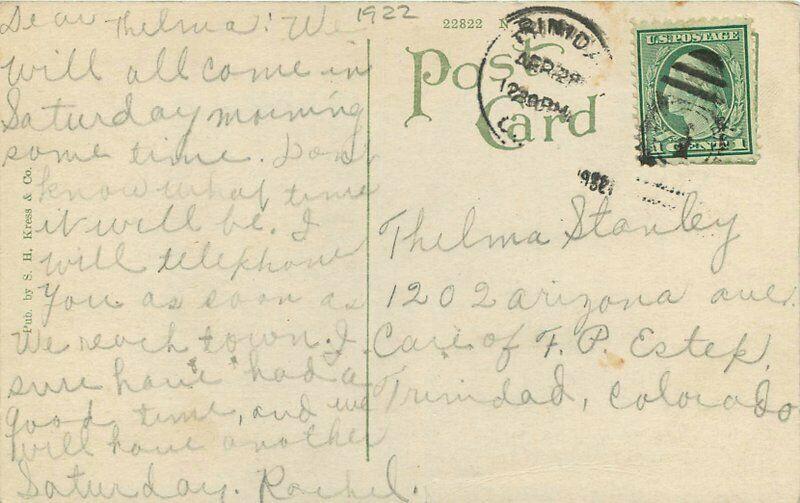 Dear Thelma: We
will all come in
Saturday morning
some time. Dont
know what time
it will be. I
will telephone
you as soon as
We reach town. I
sure have had a
good time, and we
will have another
Saturday. Rachel.
1922
Pub. by S. H. Kress & Co.
22822 N
Post
Card
TRINIDA
APR 28
1230PM
U.S. POSTAGE
1 CENT 1
Thelma Stanley
1202 Arizona ave.
Care of F. P. Estep,
Trinidad, Colorado